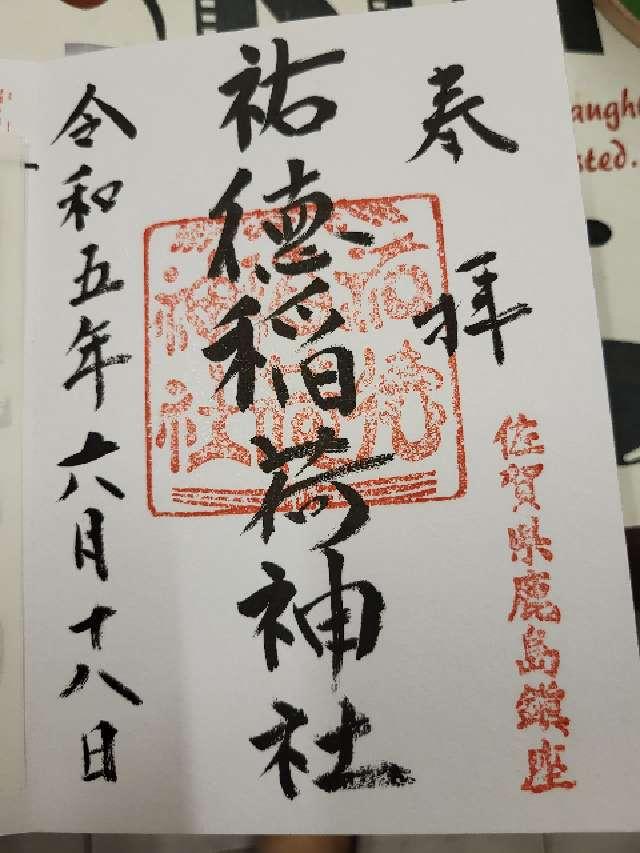 奉拝
佐賀県鹿島鎮座
祐徳稲荷神社
令和五年六月十八日
sted.